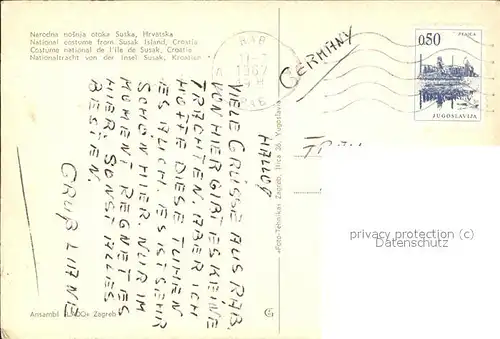 Narodna nošnja otoka Suska, Hrvatska
National costume from Susak Island, Croatia
Costume national de l'île de Susak, Croatie
Nationaltracht von der Insel Susak, Kroatien
RAB
1967
RAB
GERMANY
0,50
JUGOSLAVIJA
HALLO
VIELE GRÜSSE AUS RAB.
VON HIER GIBT ES KEINE
TRACHTEN. ABER ICH
HOFFE DIESE TUHEN
ES AUCH. ES IST SEHR
SCHÖN HIER. NUR IM
MOMENT REGNET ES
HIER SONST ALLES
BESTEN.
GRUß LIANE
»Foto-Tehnika« Zagreb, Ilica 36, Yugoslavia
privacy protection (c)
Datenschutz
Ansambl Zagreb